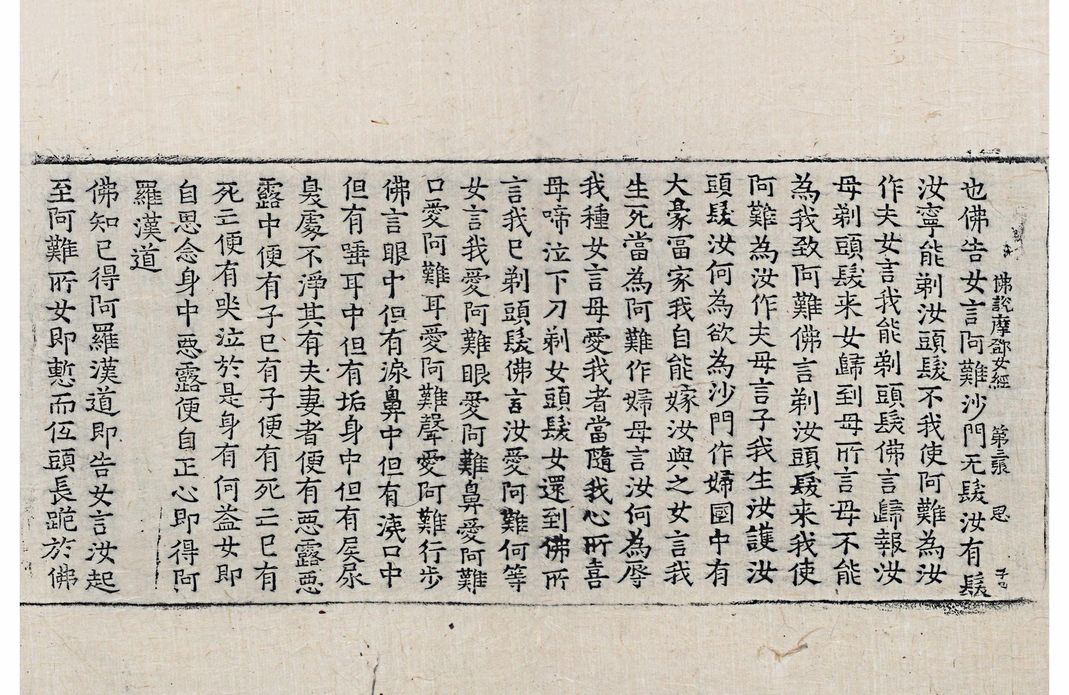 佛說摩鄧女經 第二張 思
也佛告女言阿難沙門无髮汝有髮
汝寧能剃汝頭髮不我使阿難為汝
作夫女言我能剃頭髮佛言歸報汝
母剃頭髮来女歸到母所言母不能
為我致阿難佛言剃汝頭髮来我使
阿難為汝作夫母言子我生汝護汝
頭髮汝何為欲為沙門作婦國中有
大豪冨家我自能嫁汝與之女言我
生死當為阿難作婦母言汝何為辱
我種女言母愛我者當隨我心所喜
母啼泣下刀剃女頭髮女還到佛所
言我已剃頭髮佛言汝愛阿難何等
女言我愛阿難眼愛阿難鼻愛阿難
口愛阿難耳愛阿難聲愛阿難行步
佛言眼中但有淚鼻中但有洟口中
但有唾耳中但有垢身中但有屎尿
臭處不淨其有夫妻者便有惡露惡
露中便有子已有子便有死亡已有
死亡便有哭泣於是身有何益女即
自思念身中惡露便自正心即得阿
羅漢道
佛知已得阿羅漢道即告女言汝起
至阿難所女即慙而伍頭長跪於佛